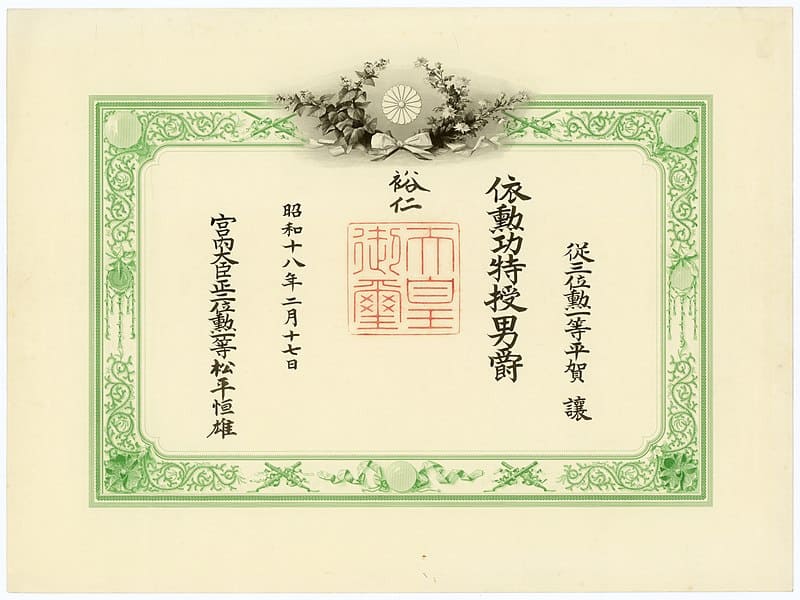 従三位勲一等平賀 讓
依勲功特授男爵
裕仁
天皇御璽
昭和十八年二月十七日
宮内大臣正三位勲一等松平恒雄